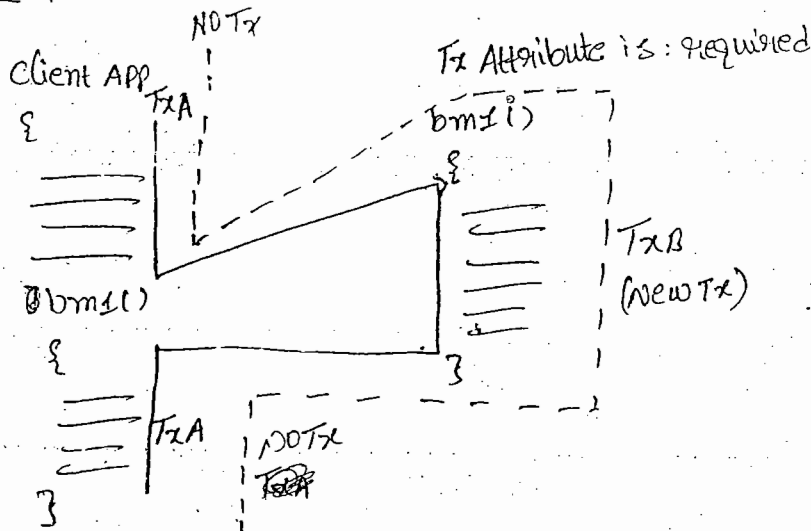 NO Tx
Client APP
TxA
Tx Attribute is : required
{
bm1()
{
TxB
(New Tx)
bm1()
}
{
TxA
NO Tx
}